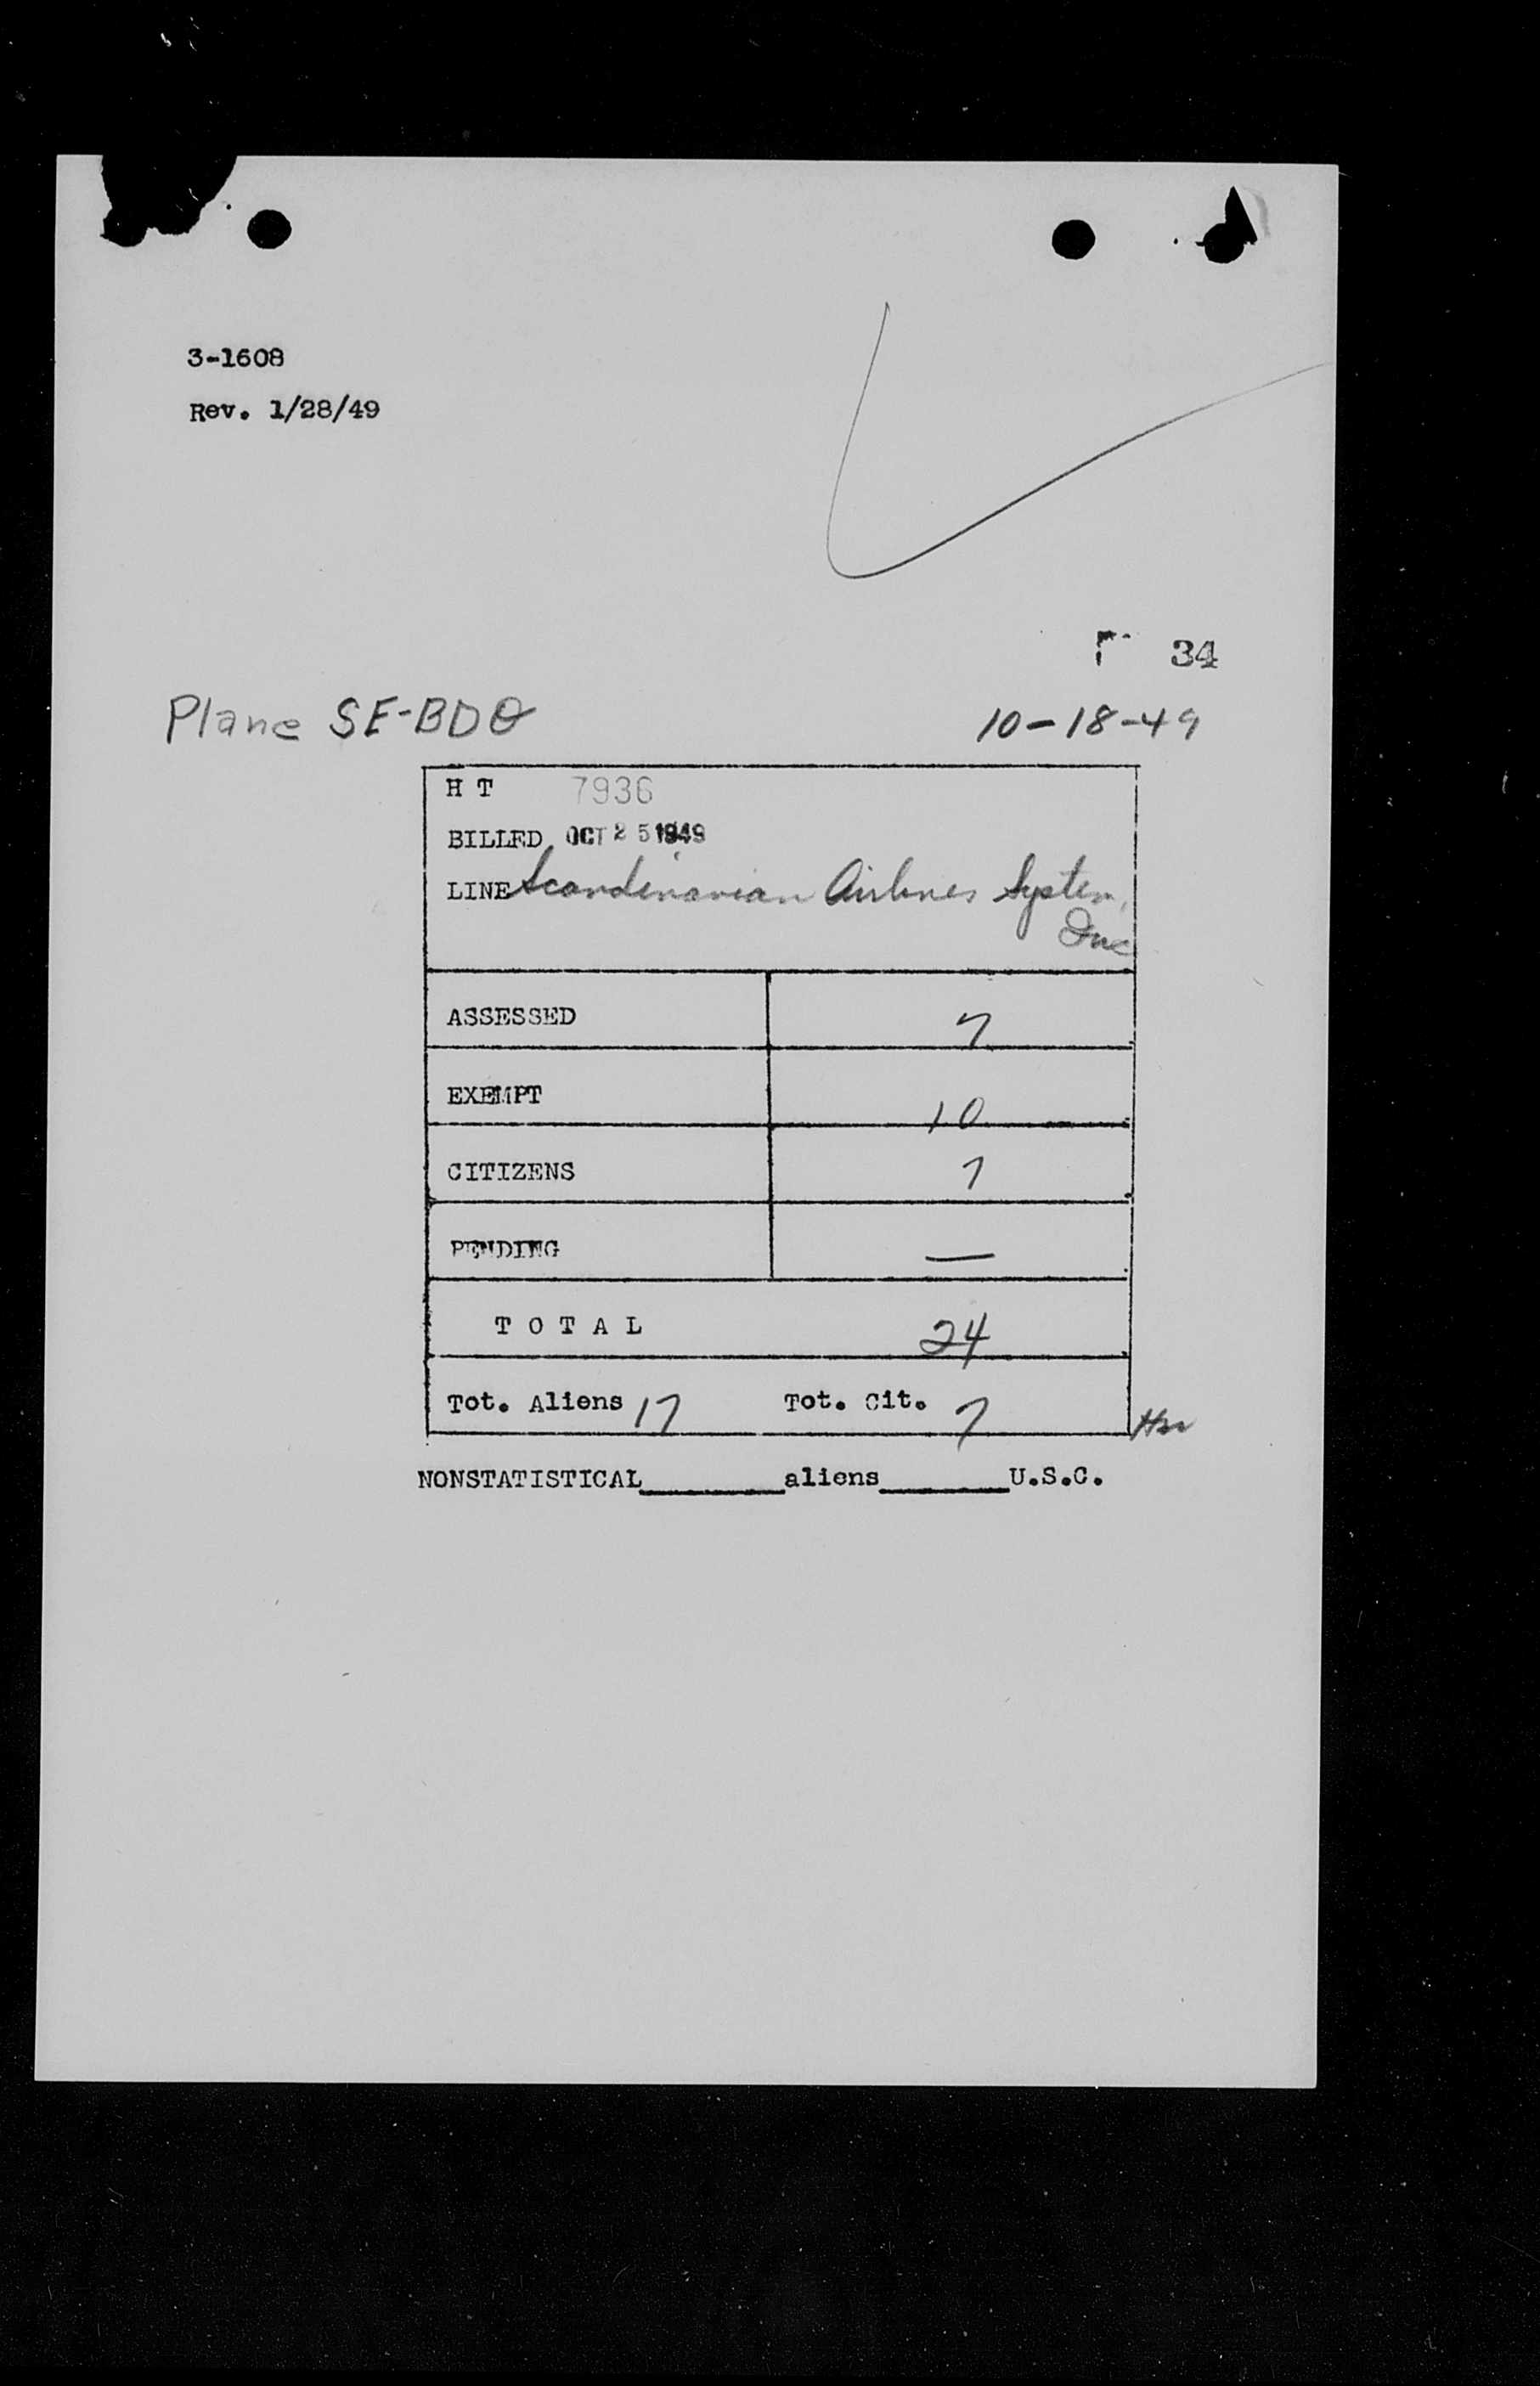 3-1608
Rev. 1/28/49
34
Plane SE-BDO
10-18-49
H T 7936
BILLED OCT 25 1949
LINE Scandinavian Airlines System,
Inc
ASSESSED 7
EXEMPT 10
CITIZENS 7
PENDING —
T O T A L 24
Tot. Aliens 17 Tot. Cit. 7
NONSTATISTICAL________aliens________U.S.C.